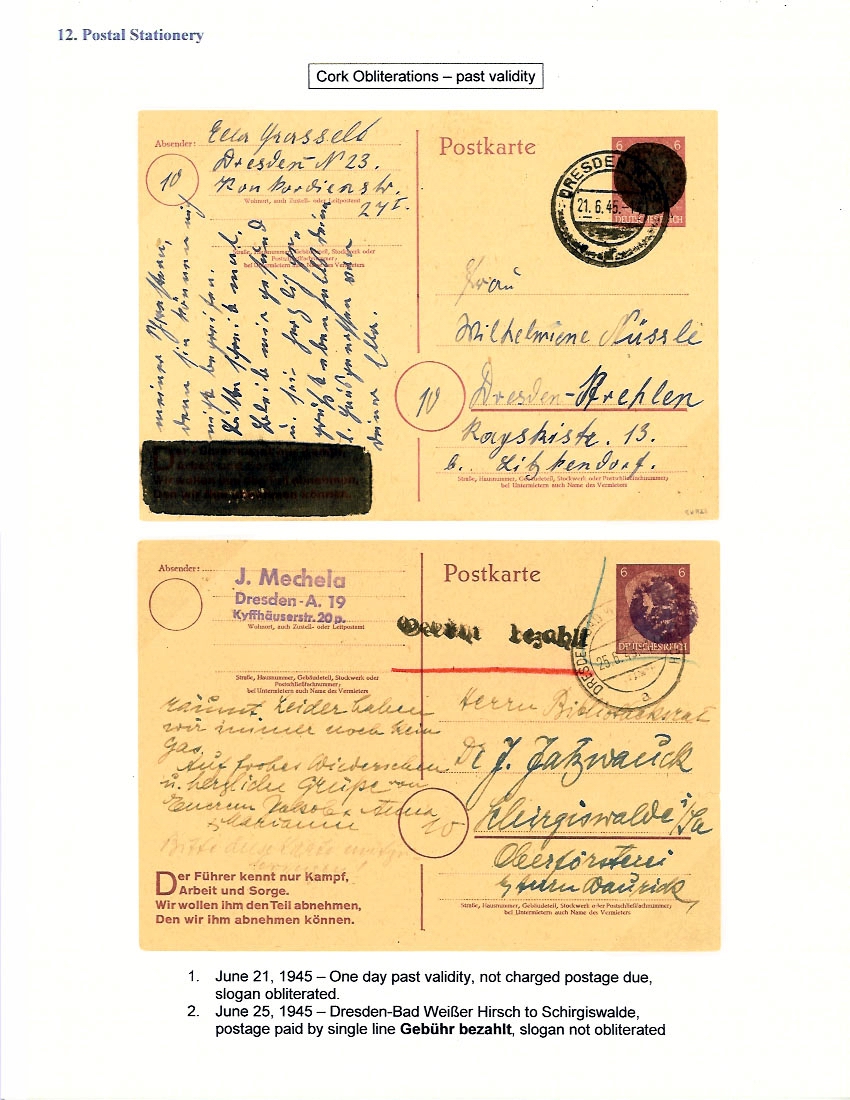 12. Postal Stationery
Cork Obliterations – past validity
Absender:
Ella
Dresden-N 23.
Wohnort, auch Zustell- oder Leitpostamt
27 I.
10
Straße, Hausnummer, Gebäudeteil, Stockwerk oder
Postschließfachnummer;
bei Untermietern auch Name des Vermieters
meiner
denn können
nicht begreifen.
Postkarte
6 6
DEUTSCHES REICH
DRESDEN
21.6.45.
Frau
Wilhelmiene Nüssli
10
Dresden-Strehlen
13.
b. Litzkendorf.
Straße, Hausnummer, Gebäudeteil, Stockwerk oder Postschließfachnummer;
bei Untermietern auch Name des Vermieters
Den wir ihm abnehmen können.
Absender:
J. Mechela
Dresden-A. 19
Kyffhäuserstr. 20 p.
Wohnort, auch Zustell- oder Leitpostamt
Straße, Hausnummer, Gebäudeteil, Stockwerk oder
Postschließfachnummer;
bei Untermietern auch Name des Vermieters
Postkarte
bezahlt
6 6
DEUTSCHES REICH
DRESDEN
25.6.45
a
räumt. Leider haben
wir immer noch kein
Gas.
Auf frohes Wiedersehen
u. herzliche Grüße von
Eurem Jakob, Anna
+ Marianne
Bitte diese Karte
Der Führer kennt nur Kampf,
Arbeit und Sorge.
Wir wollen ihm den Teil abnehmen,
Den wir ihm abnehmen können.
Herrn Bibliotheksrat
Dr J. Jatzwauck
10
Schirgiswalde i/Sa
Oberförsterei
Straße, Hausnummer, Gebäudeteil, Stockwerk oder Postschließfachnummer;
bei Untermietern auch Name des Vermieters
1. June 21, 1945 – One day past validity, not charged postage due,
slogan obliterated.
2. June 25, 1945 – Dresden-Bad Weißer Hirsch to Schirgiswalde,
postage paid by single line Gebühr bezahlt, slogan not obliterated